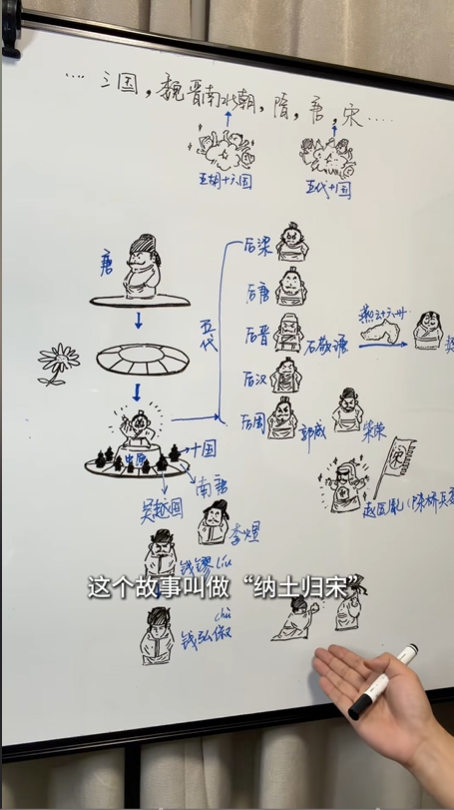 …三国，魏晋南北朝，隋，唐，宋….
五胡十六国
五代十国
唐
五代
后梁
后唐
后晋
石敬瑭
燕云十六州
契
后汉
后周
郭威
柴荣
宋
赵匡胤(陈桥兵变
中原
十国
南唐
吴越国
李煜
钱镠 Liu
chu
钱弘俶
这个故事叫做“纳土归宋”